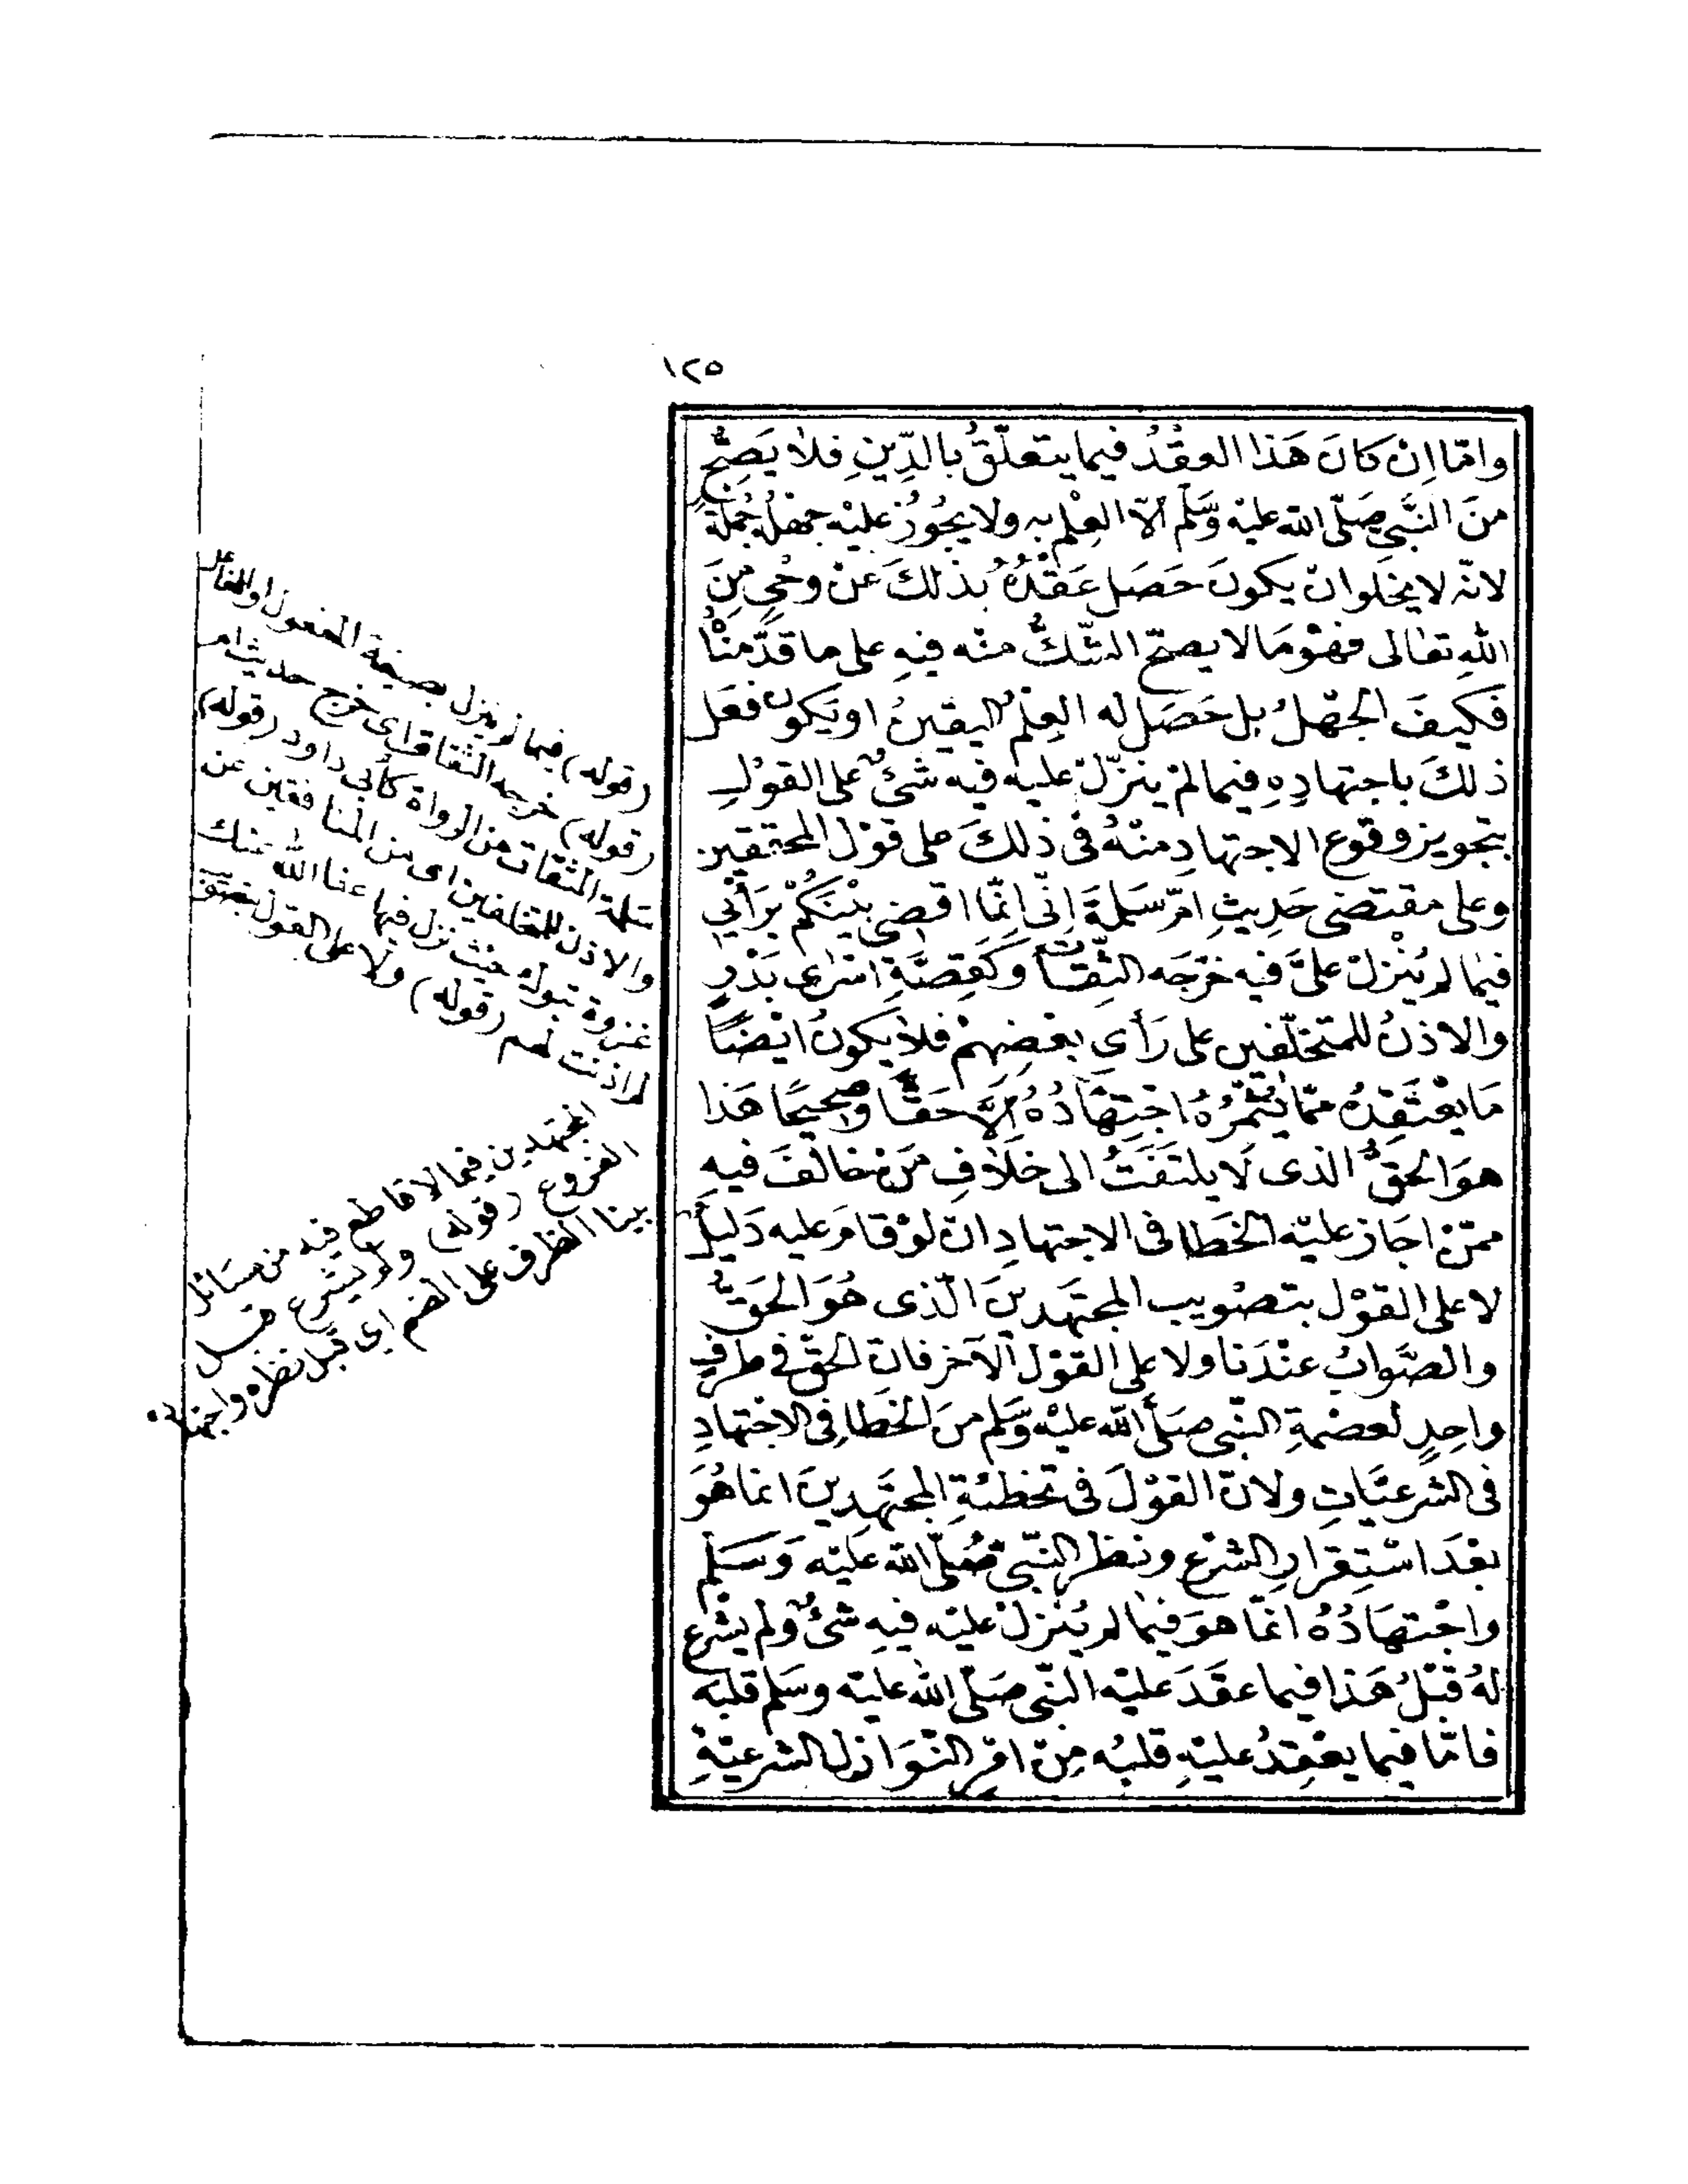 ١٢٥
وامّا اِنْ كانَ هَذا العَقْدُ فيما يتعلّقُ بالدِّينِ فلا يَصِحُّ
منَ النَّبىِّ صَلّى الله عليْه وَسَّلم اِلاّ العِلْم به ولا يجُوُز عليْه جهْلُ جُملَةً
لانّه لا يخلوا انْ يكونَ حَصَل عَقْدُهُ بذلكَ عنْ وحْىٍ مِنَ
اللهِ تعالى فهوَ مَا لا يصحّ الشّكُّ منْه فيهِ على ما قدّمنَاهُ
فكيفَ الجهْلُ بل حَصَل له العِلْمُ اليقينُ او يَكونُ فعَل
ذلكَ باجتهادِهِ فيما لمْ ينزّلْ عليه فيه شئٌ على القوْلِ
بتجويز وقوع الاجتهادِ منْهُ فى ذلكَ على قوْل المحققين
وعلى مقتضى حَدِيثِ امّ سَلمَةَ اِنّى اِنّما اقضى بيْنكُمْ بَرَأْيي
فيما لم يُنْزلْ علىَّ فيه خرّجَه الثِّقاتُ وكَقِصّةِ اسْرَى بَدْرٍ
والاذنُ للمتخلّفين على رَأْىِ بعْضِهِمْ فلا يكونُ ايْضًا
مَا يعْتَقِدُهُ ممّا يُثْمِرُهُ اجْتِهَادُهُ اِلاَّ حَقًّا وصَحِيحًا هَذا
هوَ الحَقُّ الذى لَا يلتفَتُ الى خلَافِ مَنْ خالَفَ فيهِ
ممّنْ اجَازَ عليْه الخَطَا فى الاجتهادِ انّ لوْ قامَ عليه دَليلٌ
لا على القوْل بتصْويب المجتهَدينَ الّذى هُوَ الحَقُّ
والصَّوابُ عنْدَنا ولا على القوْل الآخر فانّ الحَقّ فى طرفٍ
واحِدٍ لعصْمةِ النّبى صَلّى الله عليْه وَسّلم منَ الخَطا فِى الاجْتهادِ
فى الشرعيَّاتِ ولانّ القوْلَ فى تخطئةِ المجتَهِدينَ انما هُوَ
بعْدَ اسْتِقرارِ الشرْع ونظر النّبى صَلّى الله عَليْه وَسَلّم
واجْتهَادُهُ انمّا هوَ فيما لم يُنْزلْ عليْه فيه شئٌ ولم يشْرع
لهُ قبْلُ هَذا فيما عقَدَ عليْه النّبى صَلّى الله عليْه وسَلم قلبَه
فامّا فيما يعْقِدُ عليْهِ قلبُه مِنْ امْرِ النّوَازل الشرعيّةِ
(قوله) فيما لم ينزل بصيغة المفعول او الفاعل
(قوله) خرجه الثقات اى خرج حديث ام
سلمة الثقات من الرواة كأبى داود (قوله)
والاذن للمتخلفين اى من المنافقين عن
غزوة تبوك حيث نزل فيها عفا الله عنك
لم اذنت لهم (قوله) ولا على القول بتصويب
المجتهدين فيما لا قاطع فيه من مسائل
الفروع (قوله) ولم يشرع قبل
بينا الظرف على الضم اى قبل نظره واجتهاده